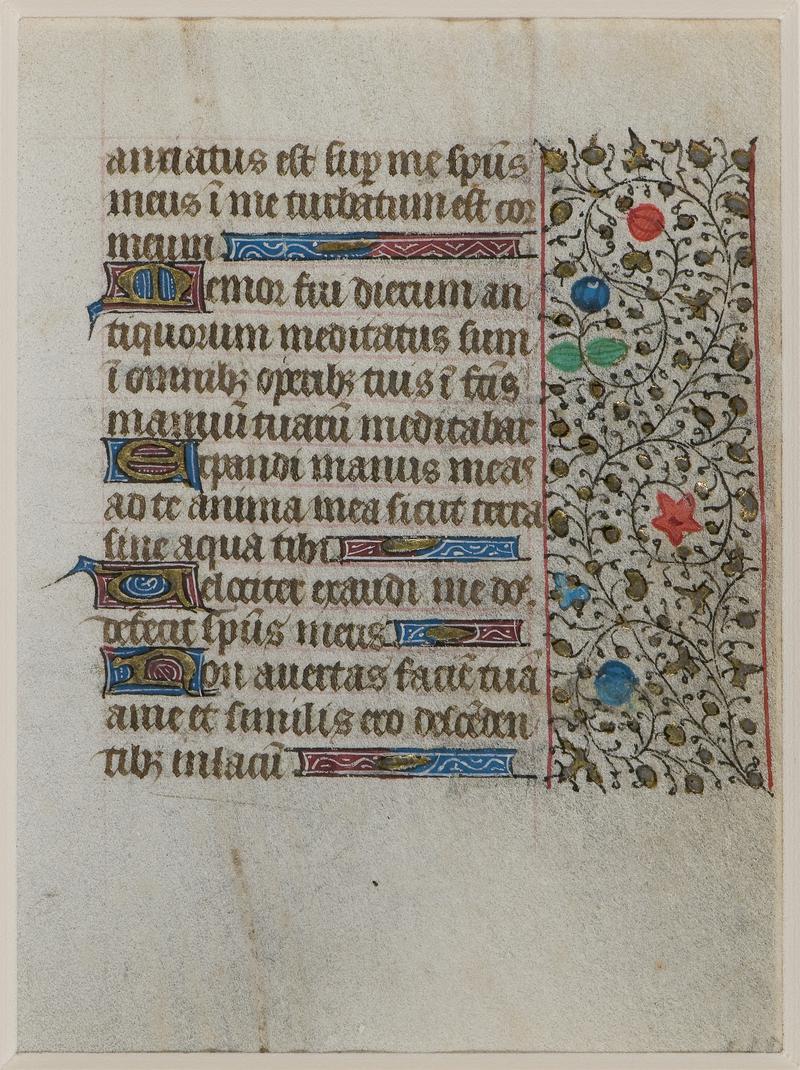 anxiatus est sup me spūs
meus ī me turbatum est cor
meum
Memor fui dierum an
tiquorum meditatus sum
ī omnibꝫ operibꝫ tuis ī fcīs
manuū tuarū meditabar
Expandi manus meas
ad te anima mea sicut terra
sine aqua tibi
Velociter exaudi me dos
defecit spūs meus
Non avertas faciē tuā
a me et similis ero descēden
tibꝫ in lacū